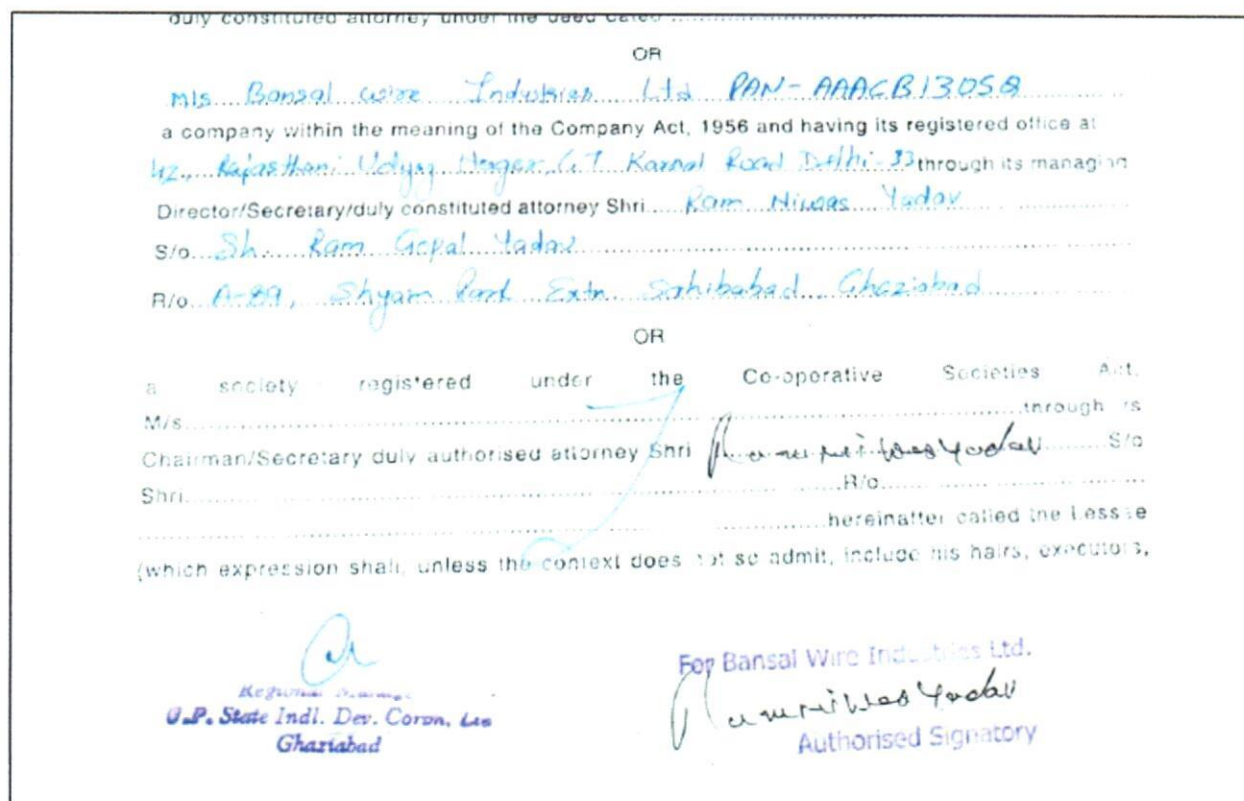 duly constituted attorney under the deed dated ..............................
OR
M/s Bansal wire Industries Ltd PAN-AAACB1305Q
a company within the meaning of the Company Act, 1956 and having its registered office at
Rajasthani Udyog Nagar, G.T Karnal Road Delhi-33 through its managing
Director/Secretary/duly constituted attorney Shri.... Ram Niwas Yadav
S/o... Sh. Ram Gopal Yadav
R/o A-89, Shyam Park Extn Sahibabad Ghaziabad
OR
a society registered under the Co-operative Societies Act.
M/s..............................through
Chairman/Secretary duly authorised attorney Shri Ram Niwas Yadav S/o
Shri..............................R/o..............................
..............................hereinafter called the Lessee
(which expression shall, unless the context does not so admit, include his hairs, executors,
Regional
U.P. State Indl. Dev. Corpn. Ltd
Ghaziabad
For Bansal Wire Industries Ltd.
Ram Niwas Yadav
Authorised Signatory